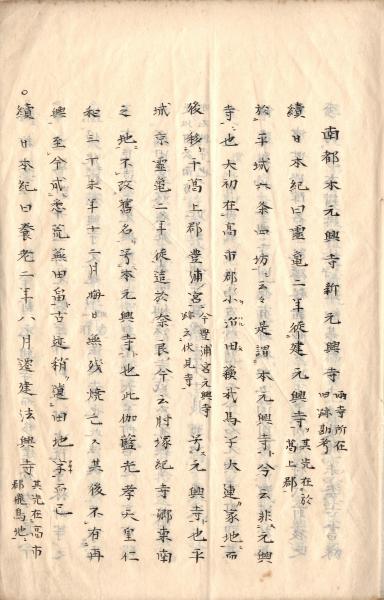 南都本元興寺新元興寺 両寺所在旧跡勘考
續日本紀曰靈亀二年徙建元興寺 其先在於葛上郡
於平城六条四坊云々是謂本元興寺今云非元興
寺也大初在高市郡小治田蘇我馬子大連家地而
後移于葛上郡豊浦宮 今豊浦宮元興寺跡云伏見寺 号元興寺也平
城京靈亀二年徙造於奈良今云肘塚紀寺郷東南
之地不改舊名号本元興寺也此伽藍光孝天皇仁
和三十未年十二月晦日無残燒亡其後不有再
興至今成悉荒蕪田畠古迹稍遺田地字而已
○續日本紀曰養老二年八月遷建法興寺 其先在高市郡飛鳥地